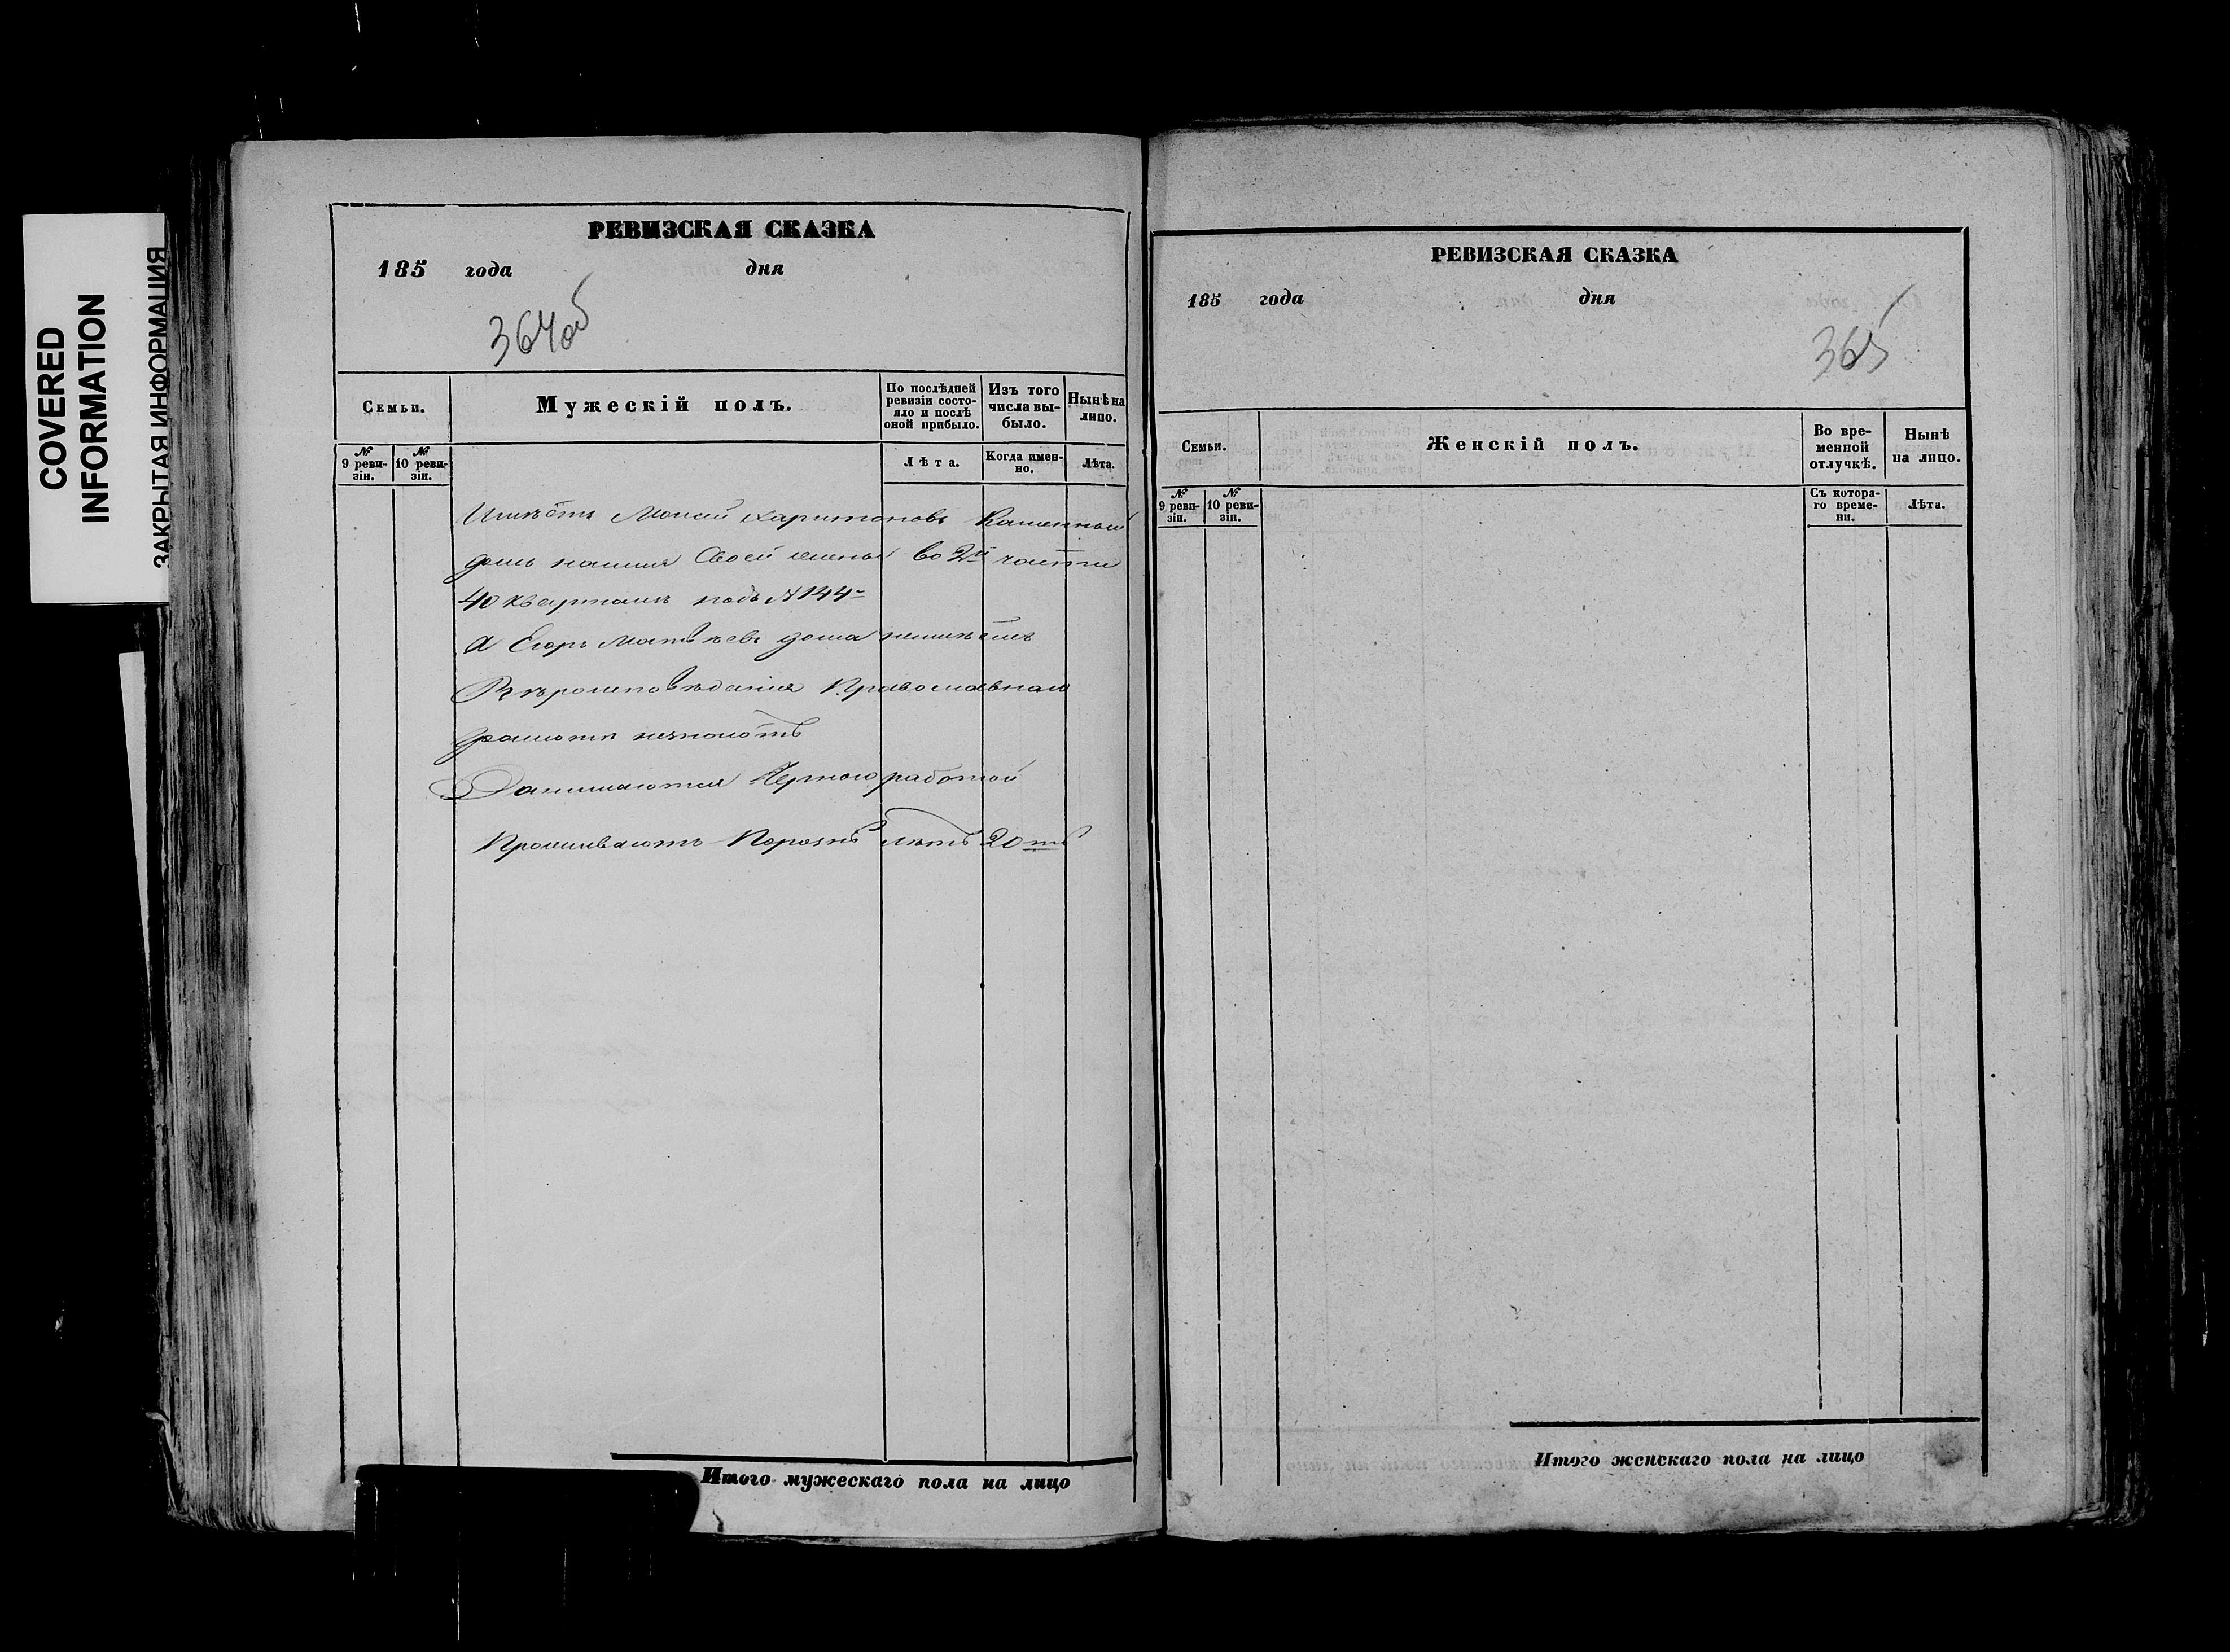 COVERED
INFORMATION
ЗАКРЫТАЯ ИНФОРМАЦИЯ
РЕВИЗСКАЯ СКАЗКА
185 года дня
364об
Семьи.
Мужескій полъ.
По послѣдней ревизіи состояло и послѣ оной прибыло.
Изъ того числа выбыло.
Нынѣ на лицо.
№ 9 ревизіи.
№ 10 ревизіи.
Лѣта.
Когда именно.
Лѣта.
Имѣетъ Моисей Харитоновъ Каменный
домъ на имя Своей жены во 2й части
40 кварталѣ подъ №144м
а Егоръ Матвѣевъ дома неимѣетъ
Вѣроисповѣданія Православнаго
грамотѣ незнаютъ
Занимаются Черною работой
Проживаютъ Порознь лѣтъ 20ть
Итого мужескаго пола на лицо
РЕВИЗСКАЯ СКАЗКА
185 года дня
365
Семьи.
Женскій полъ.
Во временной отлучкѣ.
Нынѣ на лицо.
№ 9 ревизіи.
№ 10 ревизіи.
Съ котораго времени.
Лѣта.
Итого женскаго пола на лицо